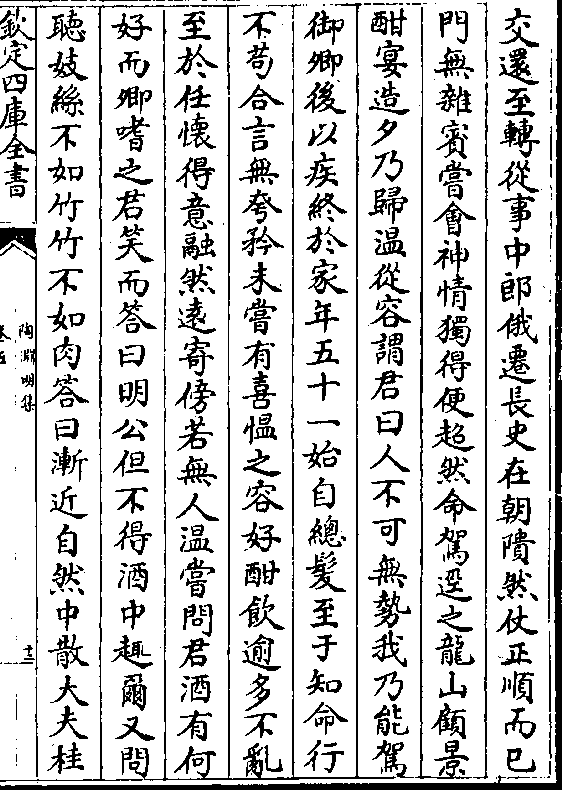 交還至轉從事中郎俄遷長史在朝隤然仗正順而已
門無雜賓嘗會神情獨得便超然命駕逕之龍山顧景
酣宴造夕乃歸温從容謂君曰人不可無勢我乃能駕
御卿後以疾終於家年五十一始自總髮至于知命行
不苟合言無夸矜未嘗有喜愠之容好酣飲逾多不亂
至於任懷得意融然遠寄傍若無人温嘗問君酒有何
好而卿嗜之君笑而答曰明公但不得酒中趣爾又問
聽妓絲不如竹竹不如肉答曰漸近自然中散大夫桂
欽定四庫全書
陶淵明集
卷五
十三